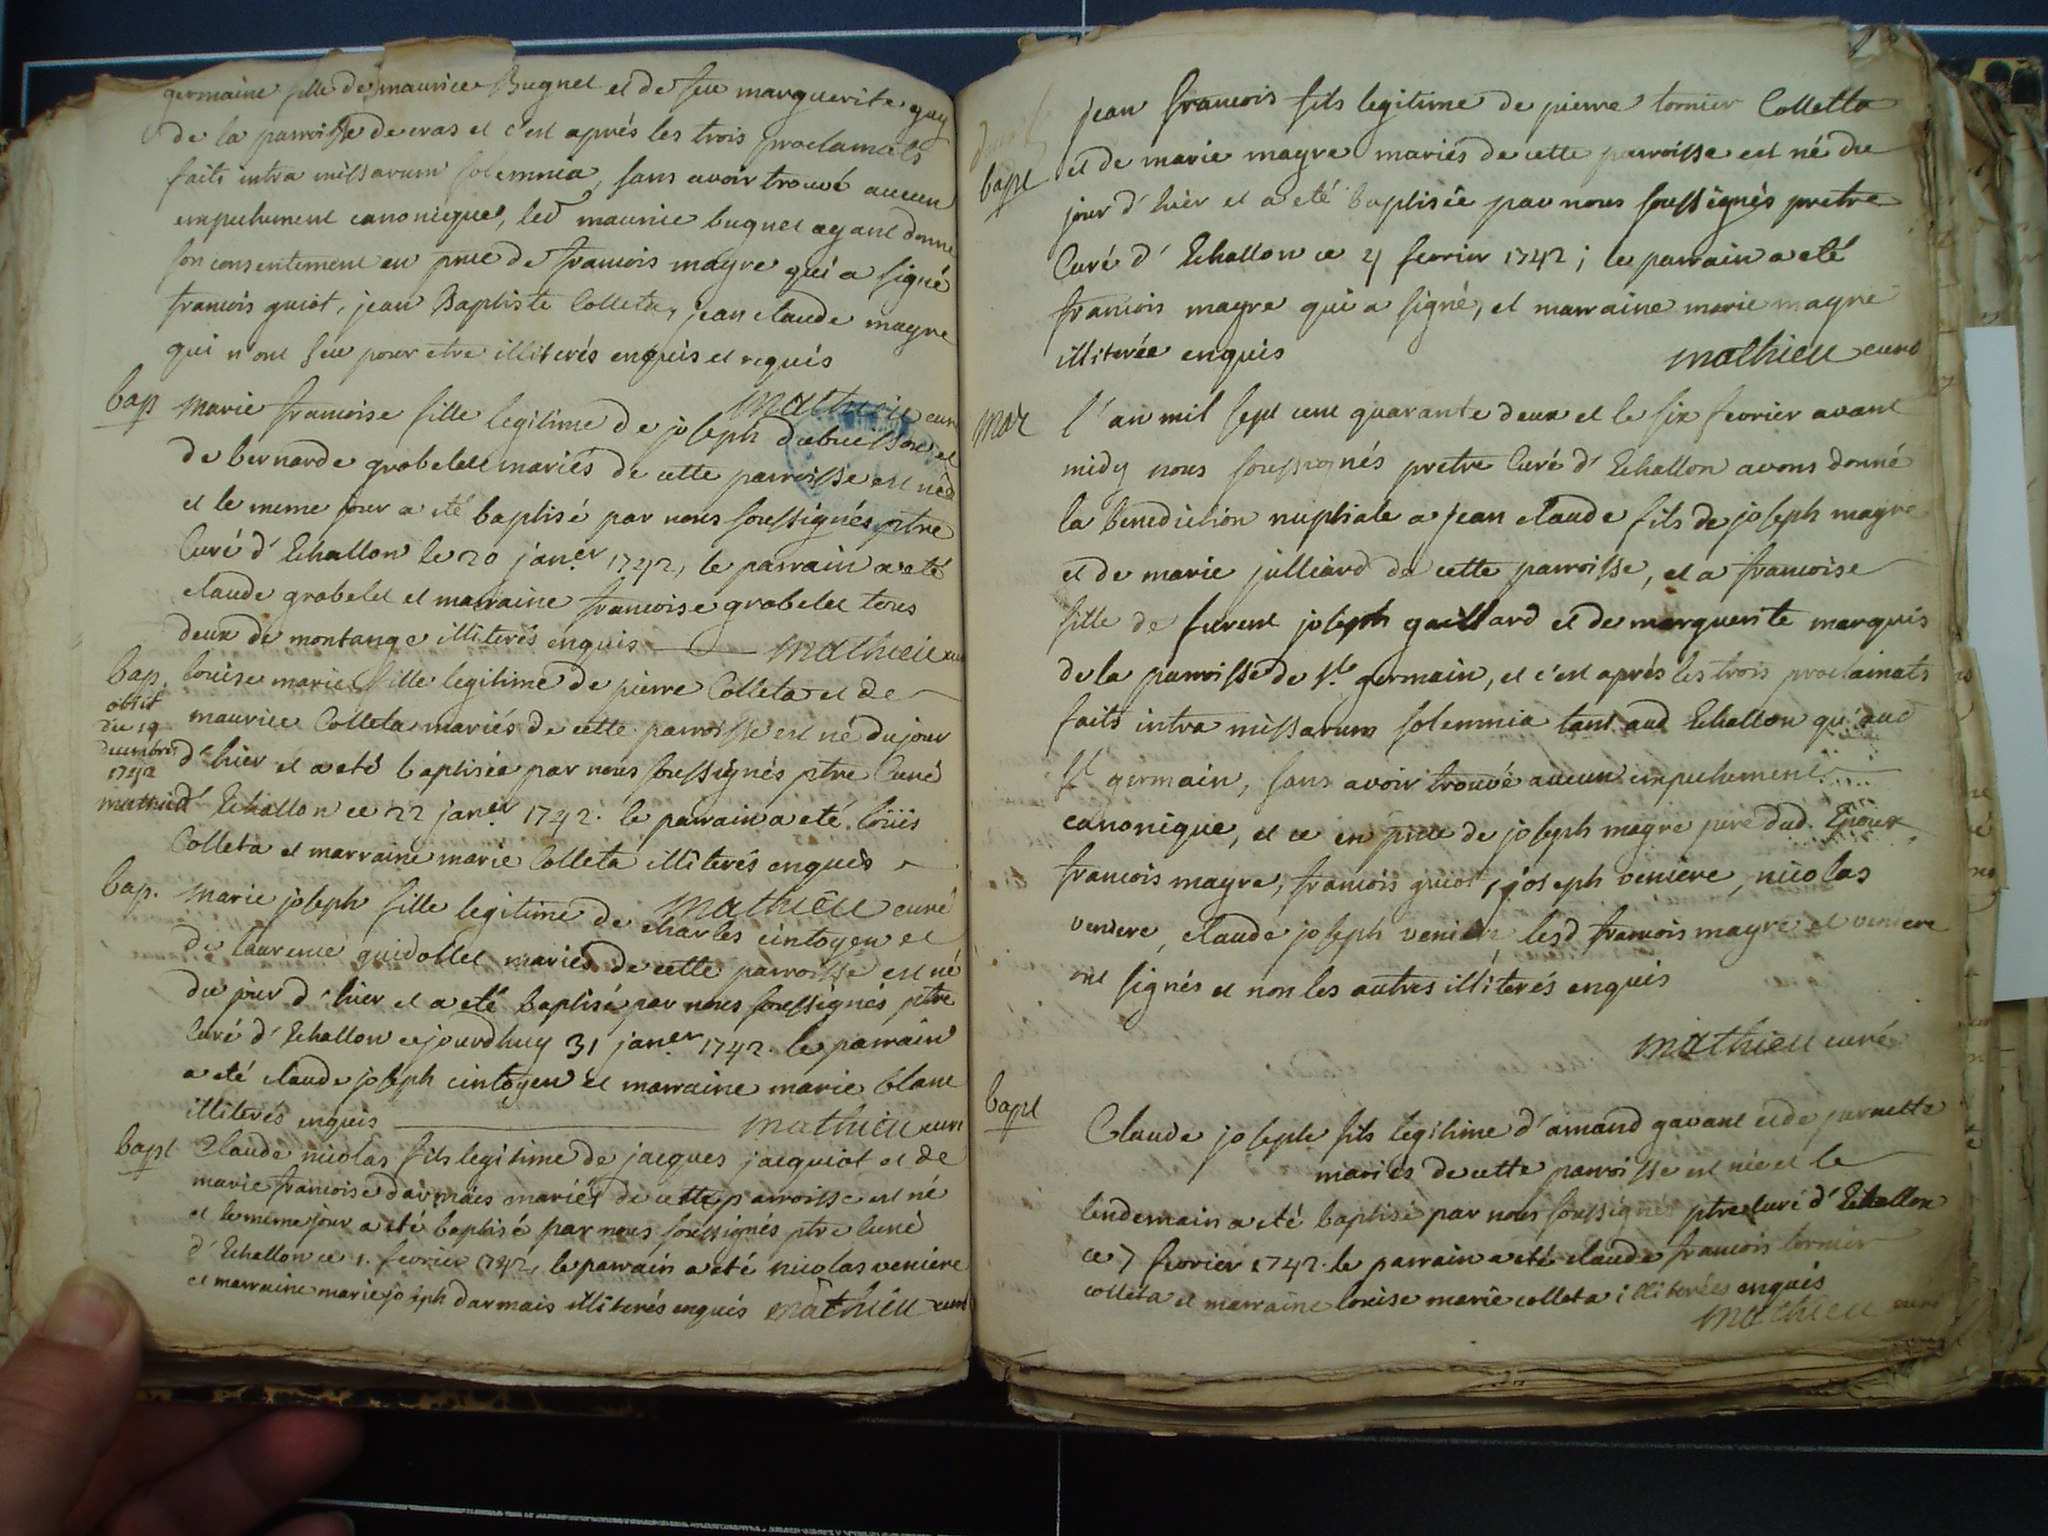 germaine fille de maurice Bugnet et de feu marguerite guy
de la parroisse de cras et c'est aprés les trois proclamats
faits intra missarum solemnia, sans avoir trouvé aucun
empechement canonique, led maurice bugnet ayant donné
son consentement en pnce de francois maygre qui a signé
francois guiot, jean Baptiste Colleta, jean claude maygre
qui n'ont seu pour etre illiterés enquis et requis
mathieu curé
bap
marie francoise fille legitime de joseph dubuisson et
de bernarde grobelet mariés de cette parroisse est née
et le meme jour a eté baptisé par nous soussignés ptre
Curé d'Echallon le 20 janer 1742, le parrain a eté
claude grobelet et marraine francoise grobelet tous
deux de montange illiterés enquis mathieu curé
bap.
obiit
du 19
decembre
1742
mathieu
louise marie fille legitime de pierre Colleta et de
maurice Colleta mariés de cette parroisse est né du jour
d'hier et a eté baptisée par nous soussignés ptre Curé
d'Echallon ce 22 janer 1742. le parrain a eté loüis
Colleta et marraine marie Colleta illiterés enquis
mathieu curé
bap.
marie joseph fille legitime de charles cintoyen et
de laurence guidollet mariés de cette parroisse est né
du jour d'hier et a eté baptisé par nous soussignés ptre
Curé d'Echallon cejourdhuy 31 janer 1742. le parrain
a eté claude joseph cintoyen et marraine marie blanc
illiterés enquis mathieu curé
bapt
Claude nicolas fils legitime de jacques jacquiot et de
marie francoise darmais mariés de cette parroisse est né
et le meme jour a eté baptisé par nous soussignés ptre Curé
d'Echallon ce 1. fevrier 1742, le parrain a eté nicolas veniere
et marraine marie joseph darmais illiterés enquis mathieu curé
bapt
jean francois fils legitime de pierre tornier Colletta
et de marie maygre mariés de cette parroisse est né du
jour d'hier et a eté baptisée par nous soussignés pretre
Curé d'Echallon ce fevrier 1742; le parrain a eté
francois maygre qui a signé, et marraine marie maygre
illiterée enquis mathieu curé
mar
l'an mil sept cent quarante deux et le six fevrier avant
midy nous soussignés pretre Curé d'Echallon avons donné
la benediction nuptiale a jean claude fils de joseph maygre
et de marie julliard de cette parroisse, et a francoise
fille de furent joseph gaillard et de marguerite marquis
de la parroisse de St germain, et c'est aprés les trois proclamats
faits intra missarum solemnia tant aud Echallon qu'aud
St germain, sans avoir trouvé aucun empechement
canonique, et ce en pnce de joseph maygre pere dud. Epoux
francois maygre, francois guiot, joseph veniere, nicolas
veniere, claude joseph veniere lesd francois maygre et veniere
ont signés et non les autres illiterés enquis
mathieu curé
bapt
Claude joseph fils legitime d'amand gavant et de
mariés de cette parroisse est née et le
lendemain a eté baptisé par nous soussignés ptre Curé d'Echallon
ce 7 fevrier 1742. le parrain a eté claude francois tornier
colleta et marraine louise marie colleta illiterées enquis
mathieu curé